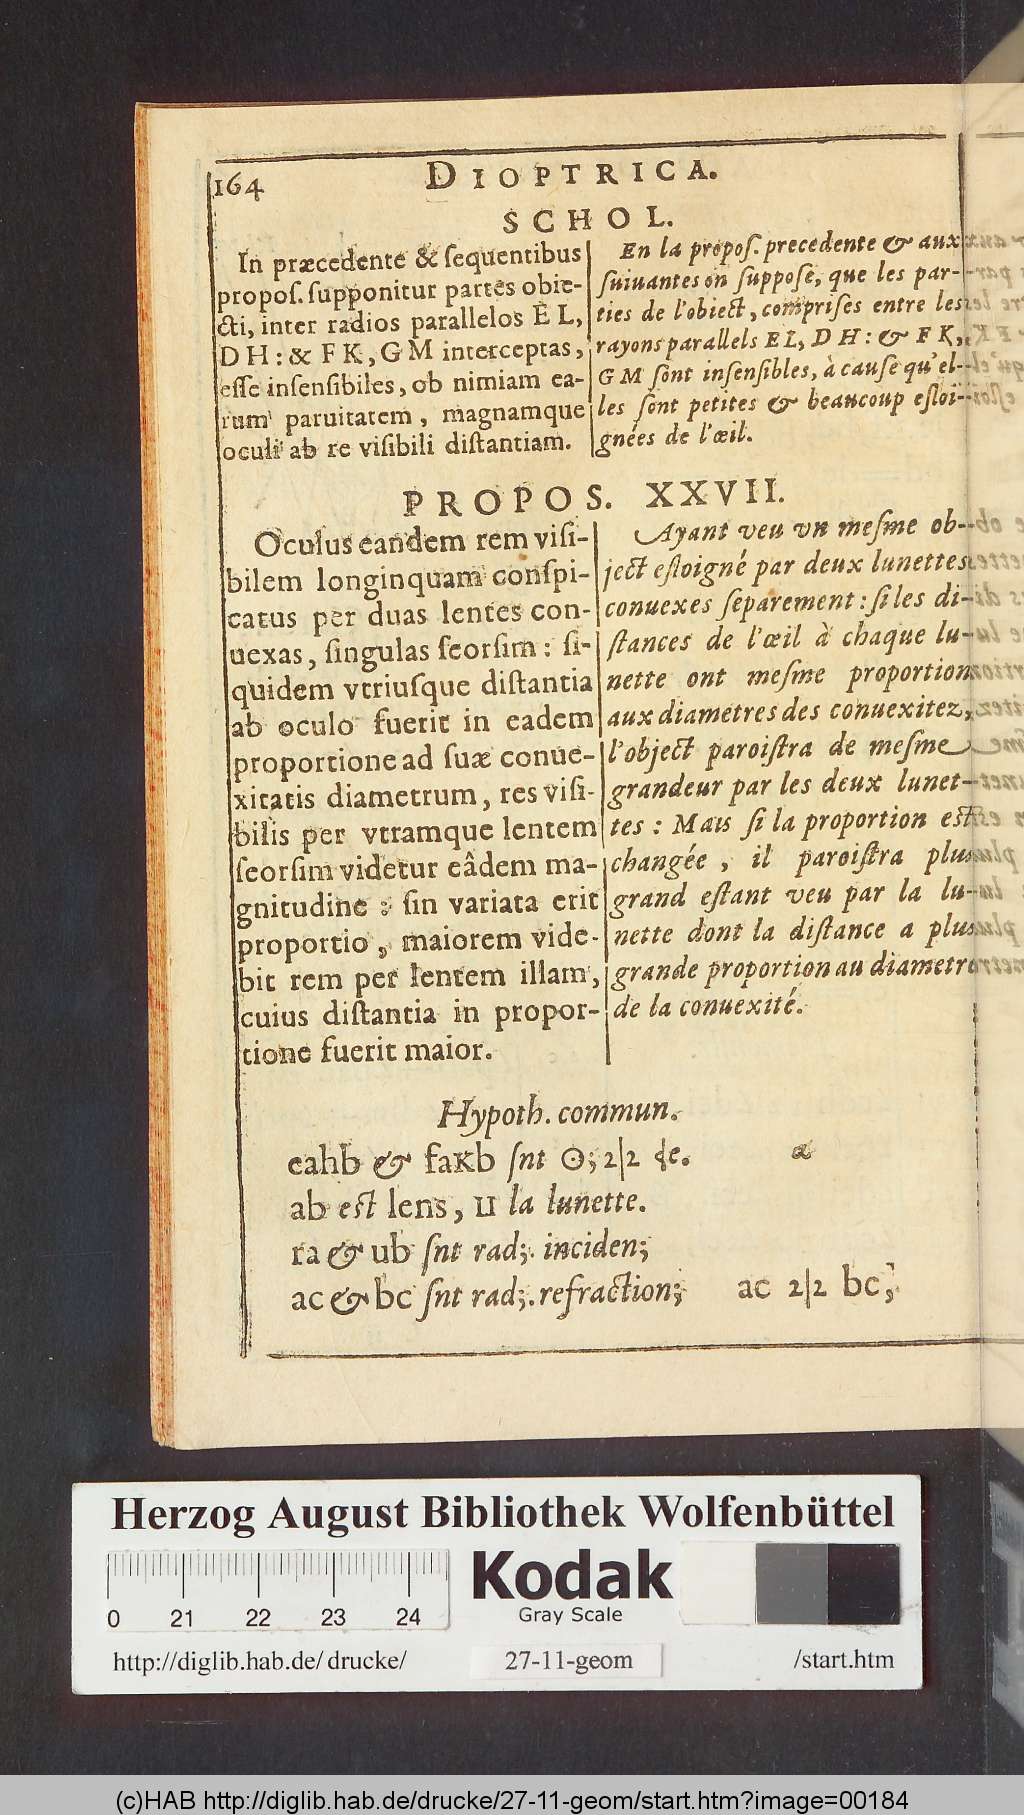 164
DIOPTRICA.
SCHOL.
In præcedente & sequentibus
propos. supponitur partes obie-
cti, inter radios parallelos EL,
DH: & FK, GM interceptas,
esse insensibiles, ob nimiam ea-
rum paruitatem, magnamque
oculi ab re visibili distantiam.
En la propos. precedente & aux
suiuantes on suppose, que les par-
ties de l'obiect, comprises entre les
rayons parallels EL, DH: & FK,
GM sont insensibles, à cause qu'el-
les sont petites & beaucoup esloi-
gnées de l'œil.
PROPOS. XXVII.
Oculus eandem rem visi-
bilem longinquam conspi-
catus per duas lentes con-
uexas, singulas seorsim: si-
quidem vtriusque distantia
ab oculo fuerit in eadem
proportione ad suæ conue-
xitatis diametrum, res visi-
bilis per vtramque lentem
seorsim videtur eâdem ma-
gnitudine: sin variata erit
proportio, maiorem vide-
bit rem per lentem illam,
cuius distantia in propor-
tione fuerit maior.
Ayant veu vn mesme ob-
ject esloigné par deux lunettes
conuexes separement: si les di-
stances de l'œil à chaque lu-
nette ont mesme proportion
aux diametres des conuexitez,
l'object paroistra de mesme
grandeur par les deux lunet-
tes: Mais si la proportion est
changée, il paroistra plus
grand estant veu par la lu-
nette dont la distance a plus
grande proportion au diametre
de la conuexité.
Hypoth. commun.
eahb & fakb snt ⊙; 2|2 de. a
ab est lens, ⊔ la lunette.
ra & ub snt rad;. inciden;
ac & bc snt rad;. refraction; ac 2|2 bc;
Herzog August Bibliothek Wolfenbüttel
0 21 22 23 24
Kodak
Gray Scale
http://diglib.hab.de/ drucke/ 27-11-geom /start.htm
(c)HAB http://diglib.hab.de/drucke/27-11-geom/start.htm?image=00184